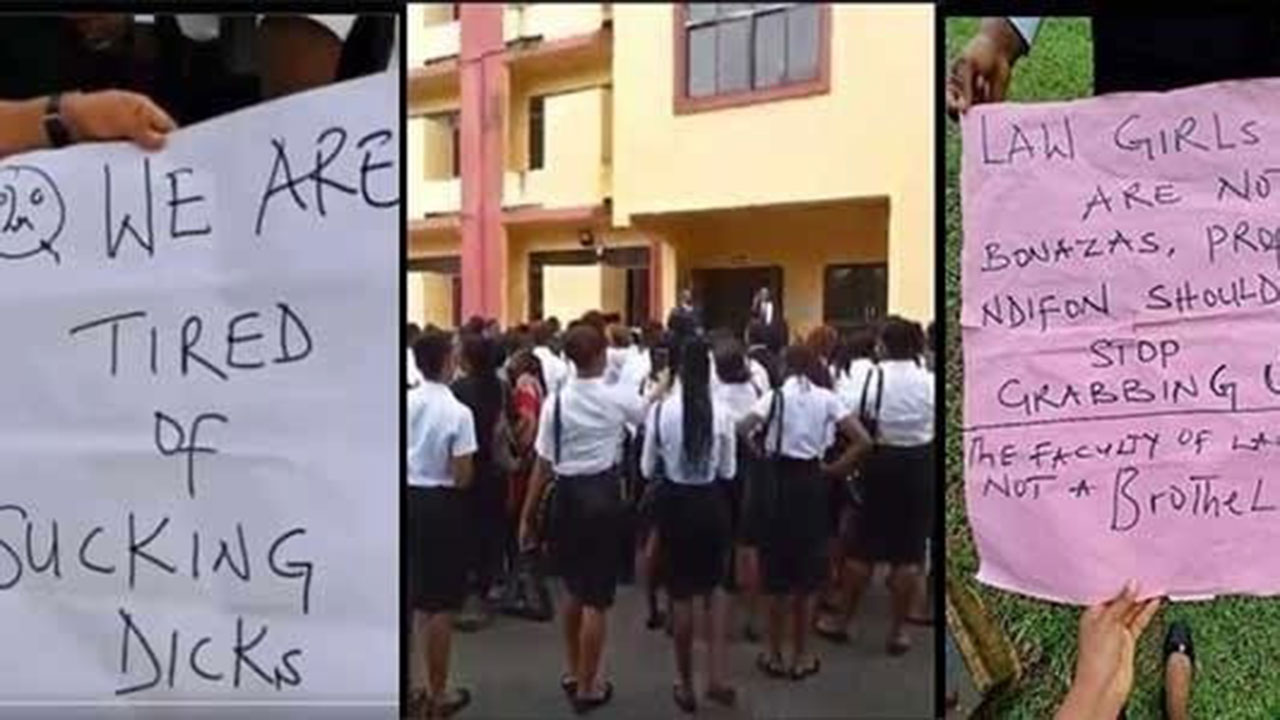 WE ARE
TIRED
OF
SUCKING
DICKS
LAW GIRLS
ARE NOT
BONAZAS, PROF
NDIFON SHOULD
STOP
GRABBING
THE FACULTY OF LAW
NOT A BROTHEL